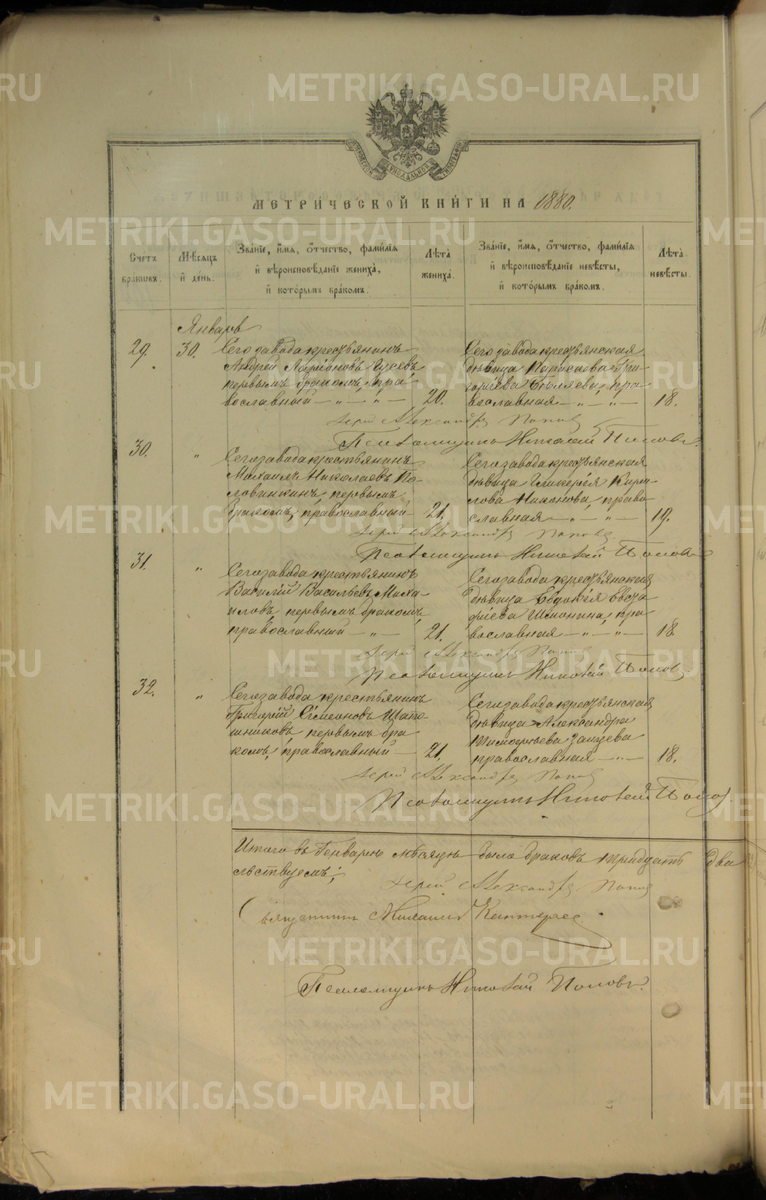 METRIKI.GASO-URAL.RU
МЕТРИЧЕСКОЙ КНИГИ НА 1880.
Счетъ браковъ.
Мѣсяцъ и день.
Званіе, имя, отчество, фамилія и вѣроисповѣданіе жениха, и которымъ бракомъ.
Лѣта жениха.
Званіе, имя, отчество, фамилія и вѣроисповѣданіе невѣсты, и которымъ бракомъ.
Лѣта невѣсты.
Январь
29. 30.
Сего завода крестьянинъ
Андрей Ларіоновъ
первымъ бракомъ, пра-
вославный 20.
Сего завода крестьянская
дѣвица Гри-
горьева пра-
вославная 18.
Іерей Александръ Поповъ
Псаломщикъ Николай Поповъ.
30. "
Сего завода крестьянинъ
Михаилъ Николаевъ По-
ловинкинъ, первымъ
бракомъ, православный 21.
Сего завода крестьянская
дѣвица Гликерія Кири-
лова правос-
лавная 19.
Іерей Александръ Поповъ
Псаломщикъ Николай Поповъ
31. "
Сего завода крестьянинъ
Василій Васильевъ Миха-
иловъ, первымъ бракомъ,
православный 21.
Сего завода крестьянская
дѣвица Евдокія
пра-
вославная 18
Іерей Александръ Поповъ
Псаломщикъ Николай Поповъ
32. "
Сего завода крестьянинъ
Григорій Симеоновъ
первымъ бра-
комъ, православный 21.
Сего завода крестьянская
дѣвица Александра
Тимофеева Зайцева
православная 18.
Іерей Александръ Поповъ
Псаломщикъ Николай Поповъ.
Итого въ Генварѣ мѣсяцѣ было браковъ тридцать два
Іерей Александръ Поповъ
Михаилъ
Псаломщикъ Николай Поповъ.